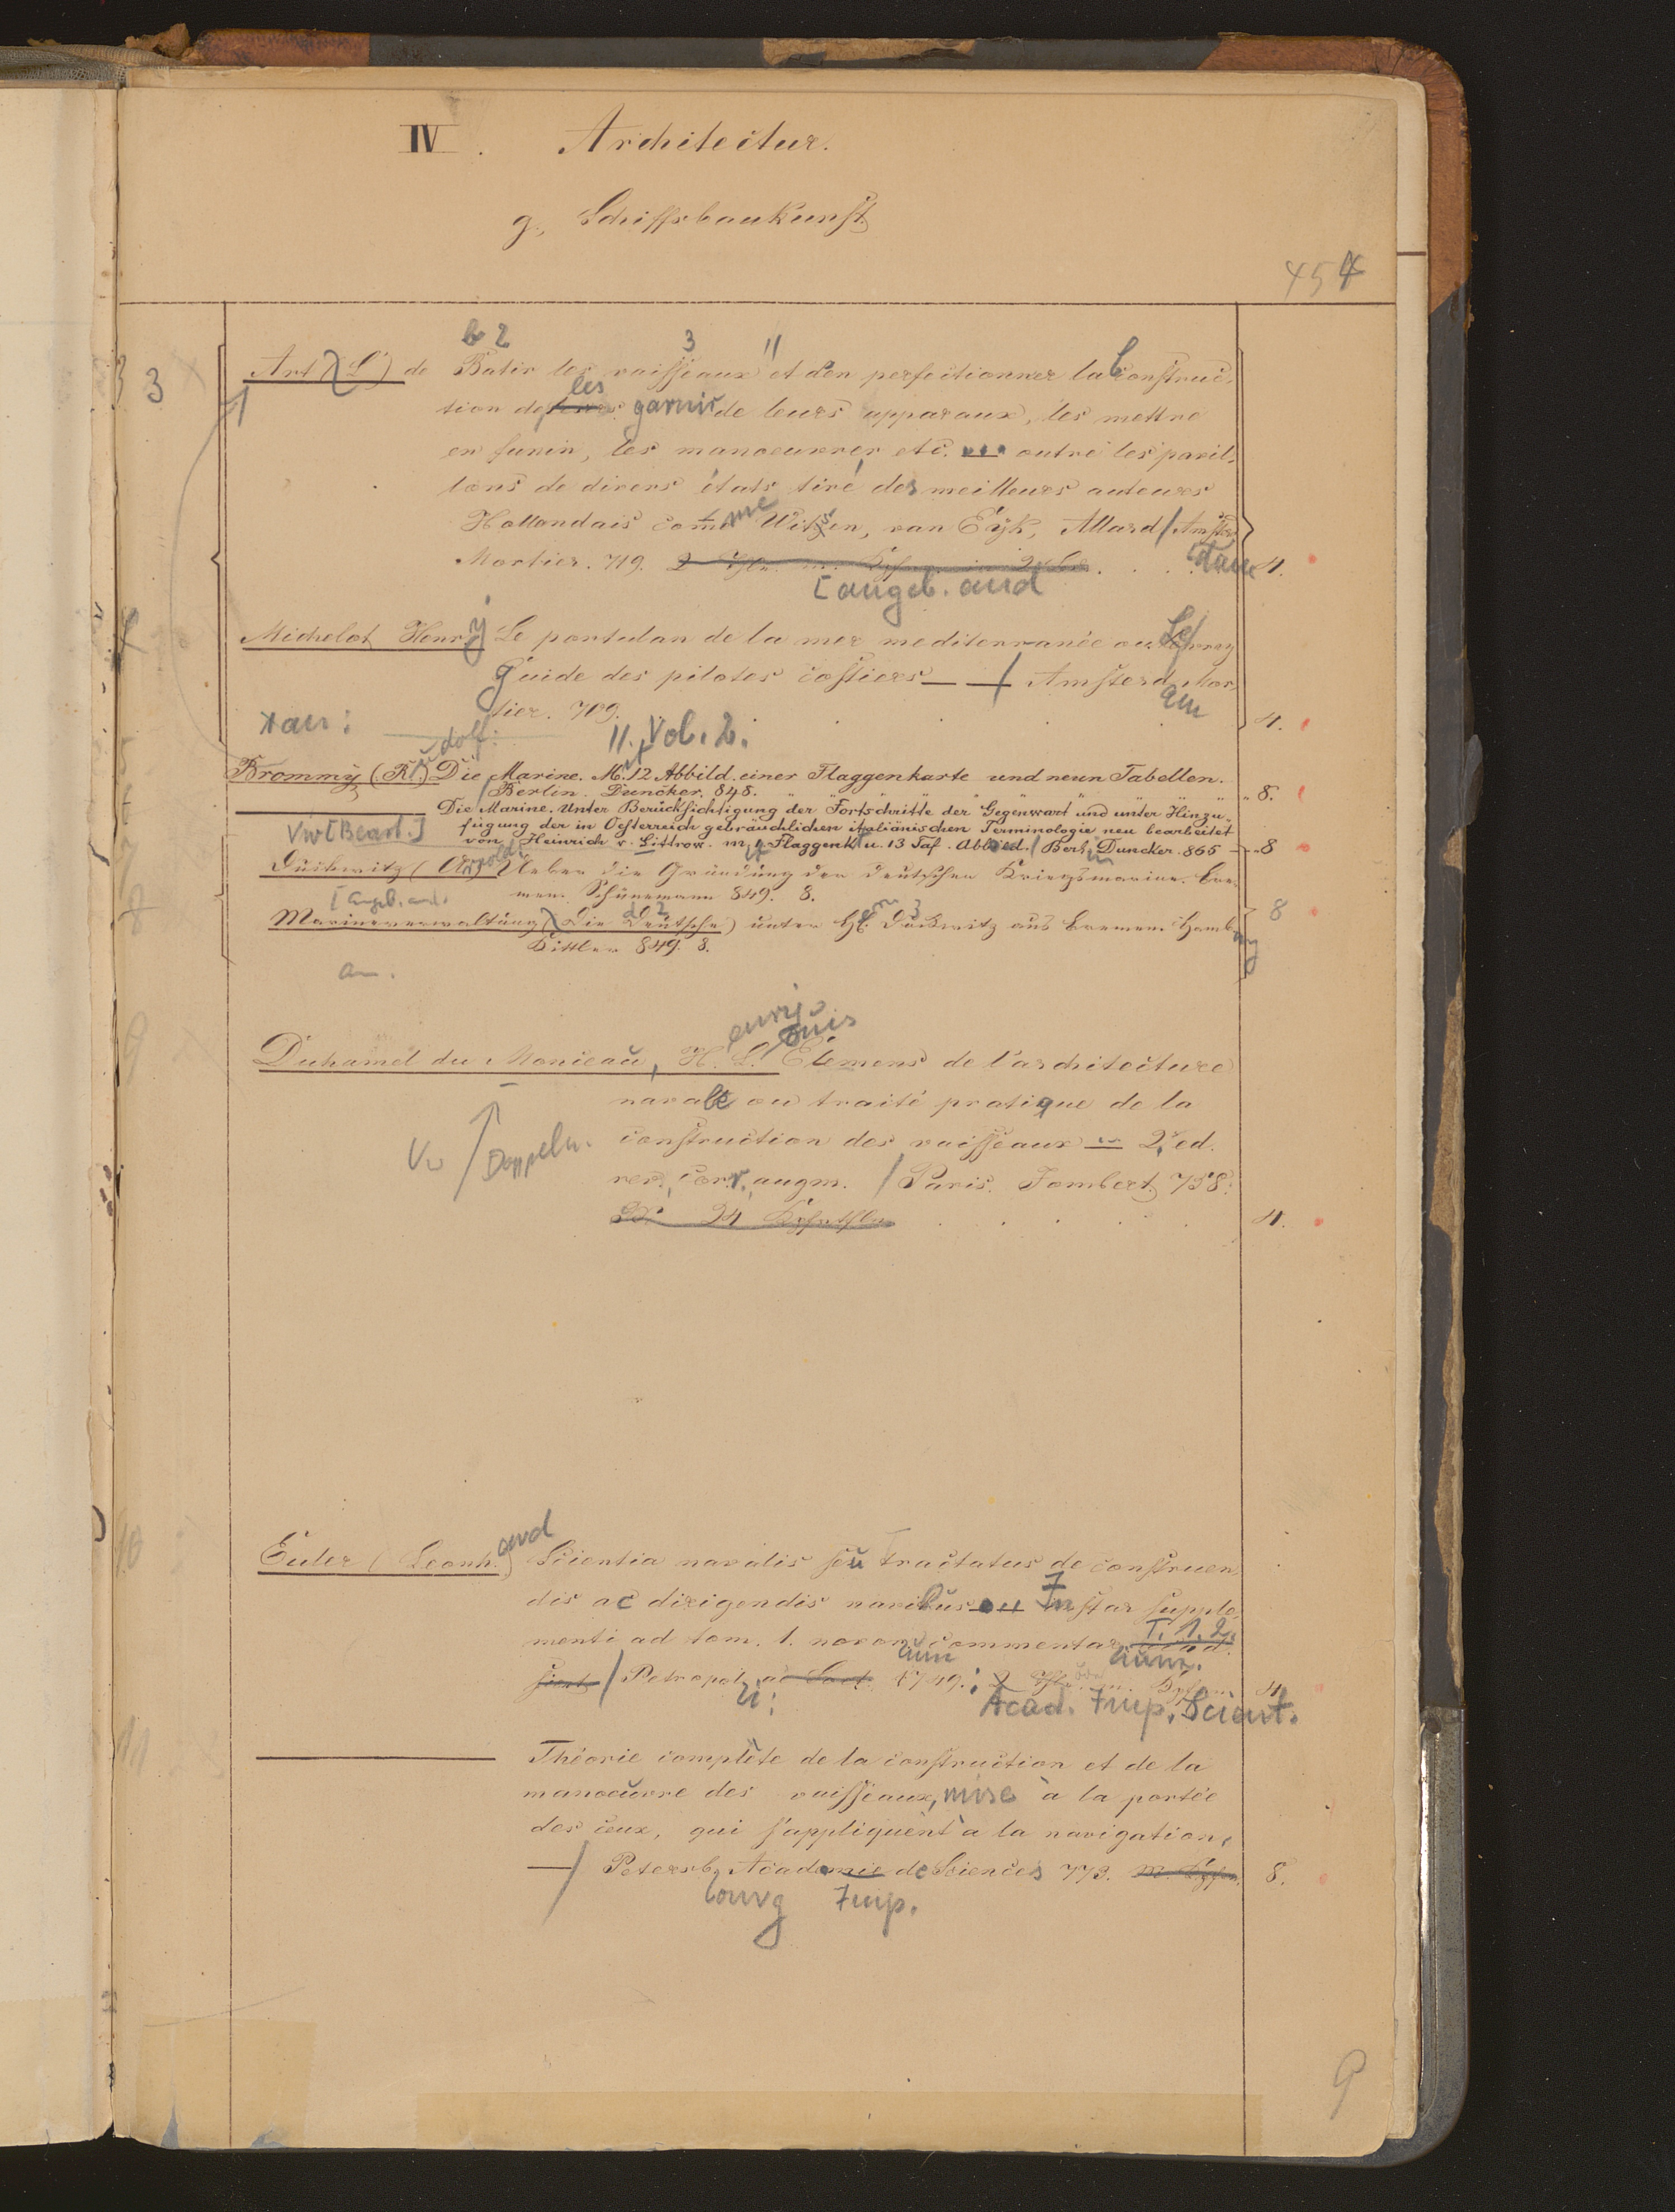 IV. Architectur.
g., Schiffsbaukunst
454
b 2 3 "
3 Art (L') de Batir les vaisseaux et d'en perfectionner la construc-
les
tion de garnir de leurs apparaux, les mettre
en funin, les manoeuvrer etc. outre les pavil-
lons de divers états tiré des meilleurs auteurs
me
Hollandais com Witsen, van Eyk, Allard / Amster
Mortier. 719. dam 4.
[angeb. and
Michelot Henry Le portulan de la mer mediterranée ou Le vray
Guide des pilotes costiers — / Amsterd Mor-
am
tier. 709. 4.
dolf: 11. Vol. 2.
Brommy (R.) Die Marine. M. 12 Abbild. einer Flaggenkarte und neun Tabellen.
Berlin. Duncker. 848. 8.
Die Marine. Unter Berücksichtigung der Fortschritte der Gegenwart und unter Hinzu-
Vw [Bearb.] fügung der in Oesterreich gebräuchlichen italiänischen Terminologie neu bearbeitet
von Heinrich v. Littrow. m. Flaggenk u. 13 Taf. Abbild. / Berl. Duncker. 865 — 8
Duckwitz (Arnold) Ueber die Gründung der deutschen Kriegsmarine. Bre-
[angeb. and. men. Schünemann 849. 8.
Marineverwaltung (Die Deutsche) unter H. Duckwitz aus Bremen. Hamb 8
Kittler 849. 8.
an.
enrij ouis
Duhamel du Monceau, H. L. Élemens de l'architecture
navale ou traité pratique de la
construction des vaisseaux 2. ed.
Vw / Doppeln.
rev., corr., augm. / Paris. Jombert. 758.
24 4.
ard
Euler (Leonh.) Scientia navalis seu tractatus de construen-
dis ac dirigendis navibus Instar supple-
menti ad tom. 1. novor. commentar. T. 1. 2.
scient / Petropol. ac 1749. 4.
i: Acad. Imp. Scient.
Théorie complète de la construction et de la
manoeuvre des vaisseaux, mise à la portée
des ceux, qui s'appliquent à la navigation.
— / Petersb. Academie de Sciences 773. 8.
bourg Imp.
9